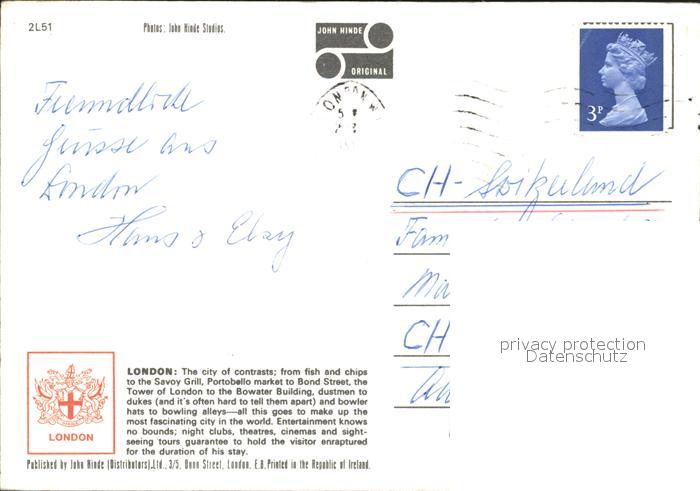 2L51
Photos: John Hinde Studios.
JOHN HINDE
ORIGINAL
3P
Freundliche
Grüsse aus
London
Hans &
CH- Switzerland
Fam
CH
privacy protection
Datenschutz
LONDON
LONDON: The city of contrasts; from fish and chips
to the Savoy Grill, Portobello market to Bond Street, the
Tower of London to the Bowater Building, dustmen to
dukes (and it's often hard to tell them apart) and bowler
hats to bowling alleys—all this goes to make up the
most fascinating city in the world. Entertainment knows
no bounds; night clubs, theatres, cinemas and sight-
seeing tours guarantee to hold the visitor enraptured
for the duration of his stay.
Published by John Hinde (Distributors),Ltd., 3/5, Dunn Street, London, E.8. Printed in the Republic of Ireland.